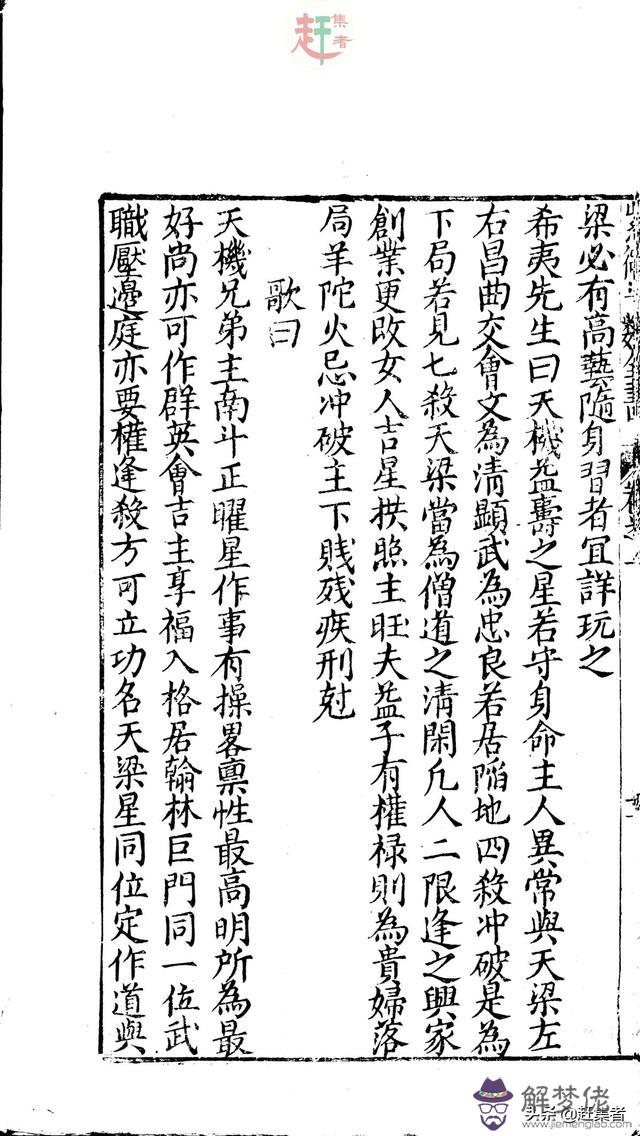 赶集者
梁必有高藝隨身習者宜詳玩之
希夷先生曰天機益壽之星若守身命主人異常與天梁左
右昌曲交會文為清顯武為忠良若居陥地四殺冲破是為
下局若見七殺天梁當為僧道之清閑凢人二限逢之興家
創業更改女人吉星拱照主旺夫益子有權禄則為貴婦落
局羊陀火忌冲破主下賎残疾刑尅
歌曰
天機兄弟主南斗正曜星作事有操畧禀性最高明所為最
好尚亦可作群英會吉主享福入格居翰林巨門同一位武
職壓邉庭亦要權逢殺方可立功名天梁星同位定作道與
解梦佬
www.jiemenglao.com
头条@赶集者